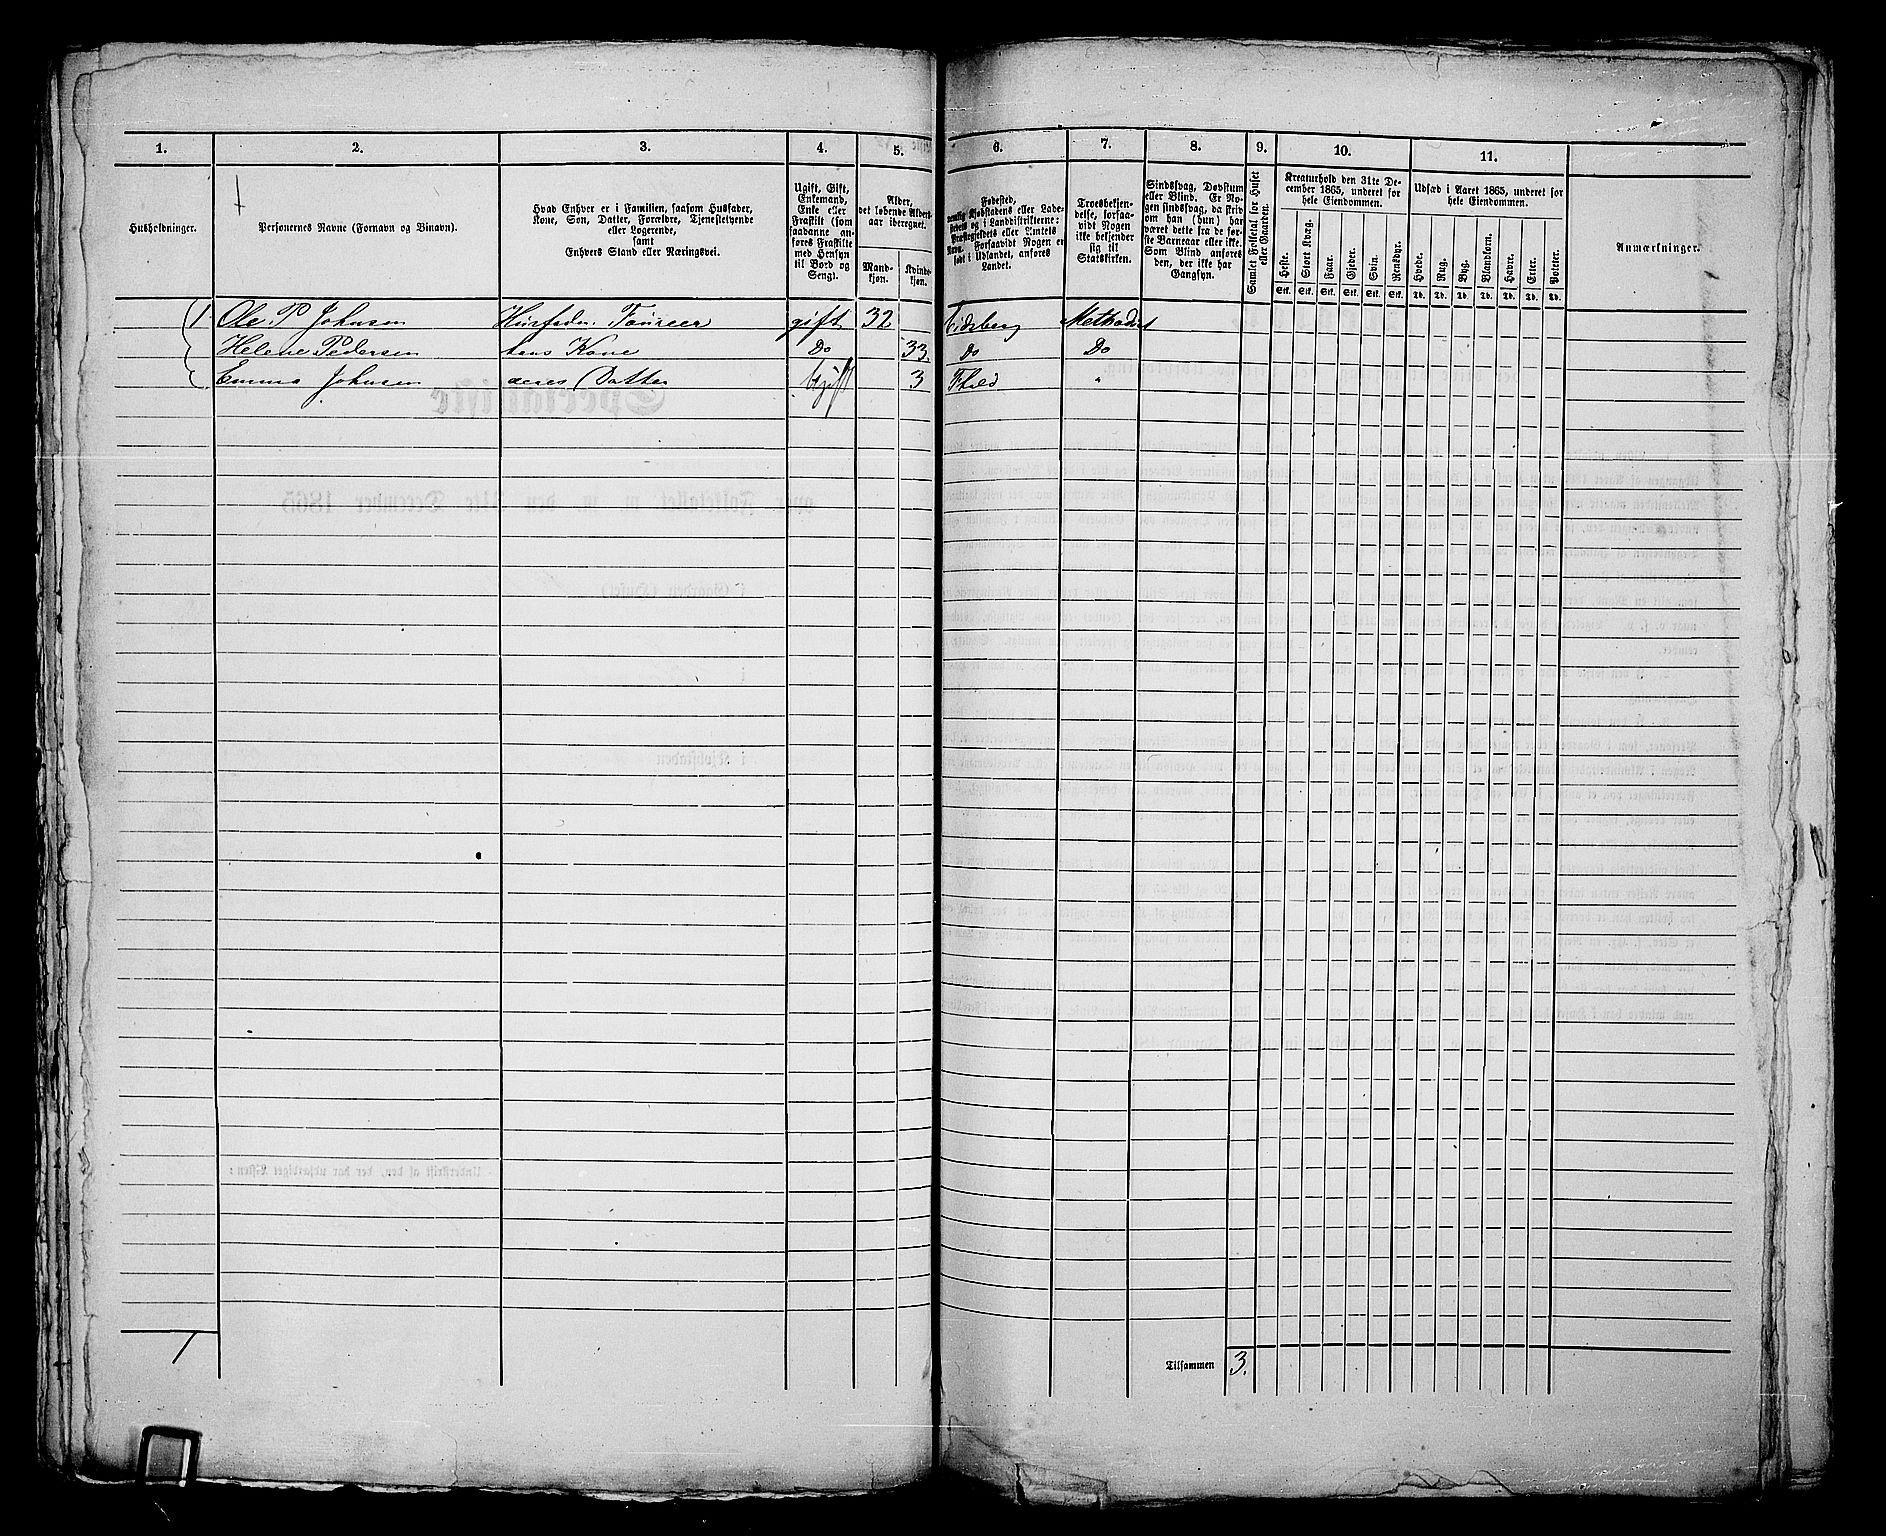 1. 2. 3. 4. 5. 6. 7. 8. 9. 10. 11.
Husholdninger.
Personernes Navne (Fornavn og Binavn).
Hvad Enhver er i Familien, saasom Husfader,
Kone, Søn, Datter, Forældre, Tjenestetyende
eller Logerende,
samt
Enhvers Stand eller Næringsvei.
Ugift, Gift,
Enkemand,
Enke eller
Fraskilt (som
saadanne an-
føres Fraskilte
med Hensyn
til Bord og
Seng).
Alder,
det løbende Alders-
aar iberegnet.
Mand-
kjøn.
Kvinde-
kjøn.
Fødested,
nemlig Kjøbstadens eller Lade-
stedets og i Landdistrikterne:
Præstegjeldets eller Amtets
Navn. Forsaavidt Nogen er
født i Udlandet, anføres
Landet.
Troesbekjen-
delse, forsaa-
vidt Nogen
ikke bekjender
sig til
Statskirken.
Sindssvag, Døvstum
eller Blind. Er No-
gen sindssvag, da skriv
om han (hun) har
været dette fra de før-
ste Barneaar eller ikke.
Som Blind anføres
den, der ikke har
Gangsyn.
Samlet Folketal for Huset
eller Gaarden.
Kreaturhold den 31te De-
cember 1865, underet for
hele Eiendommen.
Heste. Stort Kvæg. Faar. Gjeder. Svin. Rensdyr.
Stk. Stk. Stk. Stk. Stk. Stk.
Udsæd i Aaret 1865, underet for
hele Eiendommen.
Hvede. Rug. Byg. Blandkorn. Havre. Erter. Poteter.
Td. Td. Td. Td. Td. Td. Td.
Anmærkninger.
1 Ole P Johnsen Husfader. gift 32 Eidsberg Methodist
Helene Pedersen hans Kone Do 33. Do Do
Emma Johnsen deres Datter Ugift 3 Fhald "
1
Tilsammen 3.